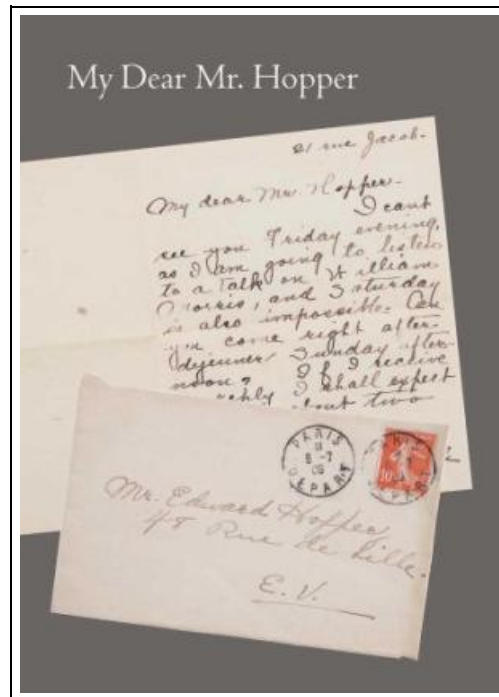 My Dear Mr. Hopper
21 rue Jacob.
My dear Mr. Hopper.
I cant
see you Friday evening,
as I am going to listen
to a talk on William
Morris, and Saturday
is also impossible. Can
you come right after
dejeuner Sunday after-
noon? If I receive
I shall expect
about two
PARIS
DEPART
10
Mr. Edward Hopper
48 Rue de Lille.
E.V.